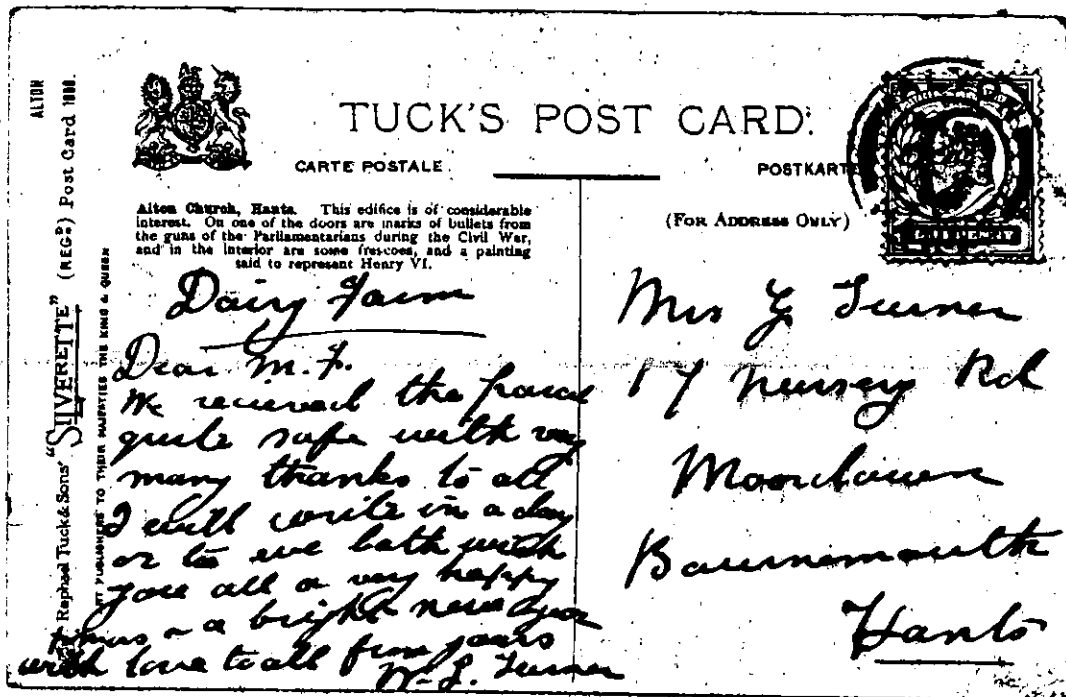 ALTON
Raphael Tuck & Sons' "SILVERETTE" (REGD) Post Card 1888.
PUBLISHERS TO THEIR MAJESTIES THE KING & QUEEN
TUCK'S POST CARD.
CARTE POSTALE
POSTKARTE
Alton Church, Hants. This edifice is of considerable
interest. On one of the doors are marks of bullets from
the guns of the Parliamentarians during the Civil War,
and in the interior are some frescoes, and a painting
said to represent Henry VI.
(FOR ADDRESS ONLY)
Dairy Farm
Dear M. F.
We recieved the parcel
quite safe with very
many thanks to all
I will write in a day
or to we both wish
you all a very happy
Xmas & a bright new year
with love to all from yours
W. L. Turner
Mrs G Turner
17 Nursery Rd
Moordown
Bournemouth
Hants